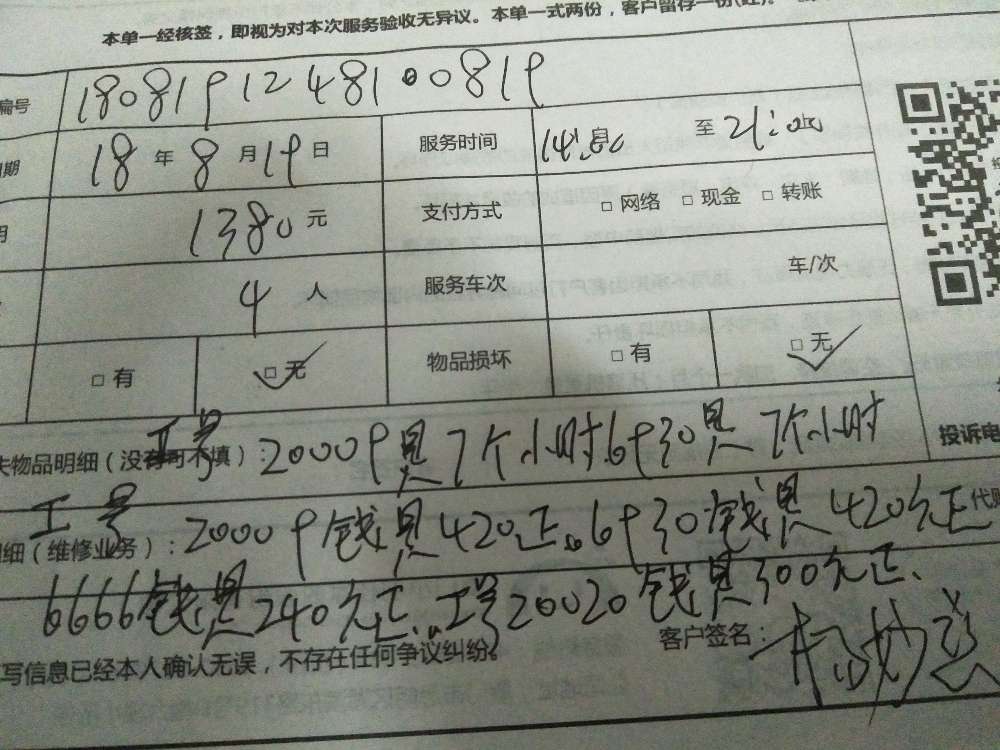 本单一经核签，即视为对本次服务验收无异议。本单一式两份，客户留存一份(红)。
编号 180819124810819
期 18 年 8 月 19 日 服务时间 14: 至 21:
1380 元 支付方式 □ 网络 □ 现金 □ 转账
4 人 服务车次 车/次
□ 有 □ 无 物品损坏 □ 有 □ 无
工号
失物品明细（没有可不填）： 20009是7个小时.6930是7个小时
投诉电
工号
细（维修业务）： 20009钱是420正。6930钱是420元正
6666钱是240元正.工号20020钱是300元正、
写信息已经本人确认无误，不存在任何争议纠纷。 客户签名：